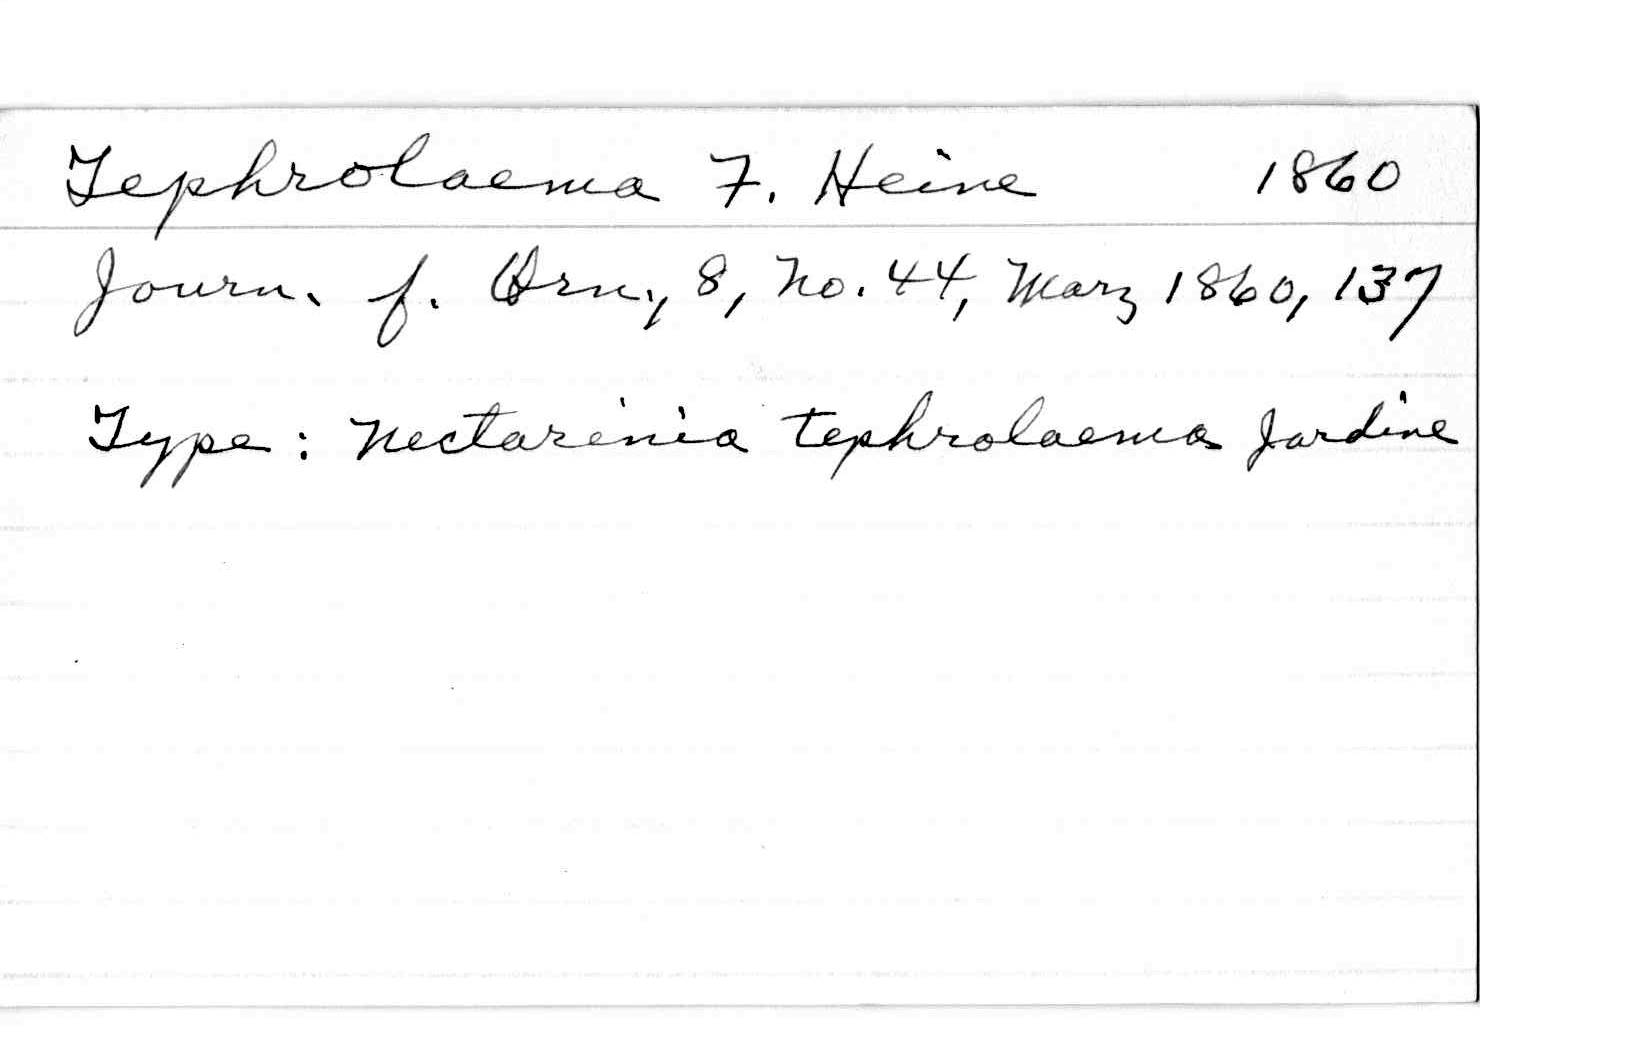 Tephrolaema F. Heine 1860
Journ. f. Orn., 8, No. 44, Marz 1860, 137
Type: Nectarinia tephrolaema Jardine